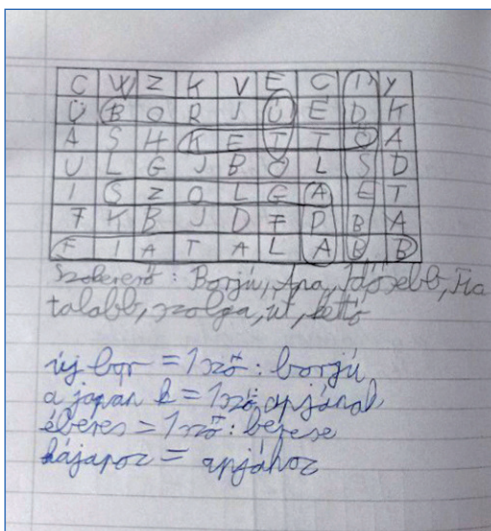 C W Z K V E C I Y
Ü B O R J Ú E D K
A S H K E T T Ő A
U L G J B Ő L S D
I S Z O L G A E T
F K B J D F P B A
F I A T A L A B B
Szókereső: Borjú, Apa, Idősebb, Fia
talabb, szolga, út, kettő
új bor = 1 szó: borjú
a japán k = 1 szó: apjának
éberes = 1 szó: bérese
hájapoz = apjához